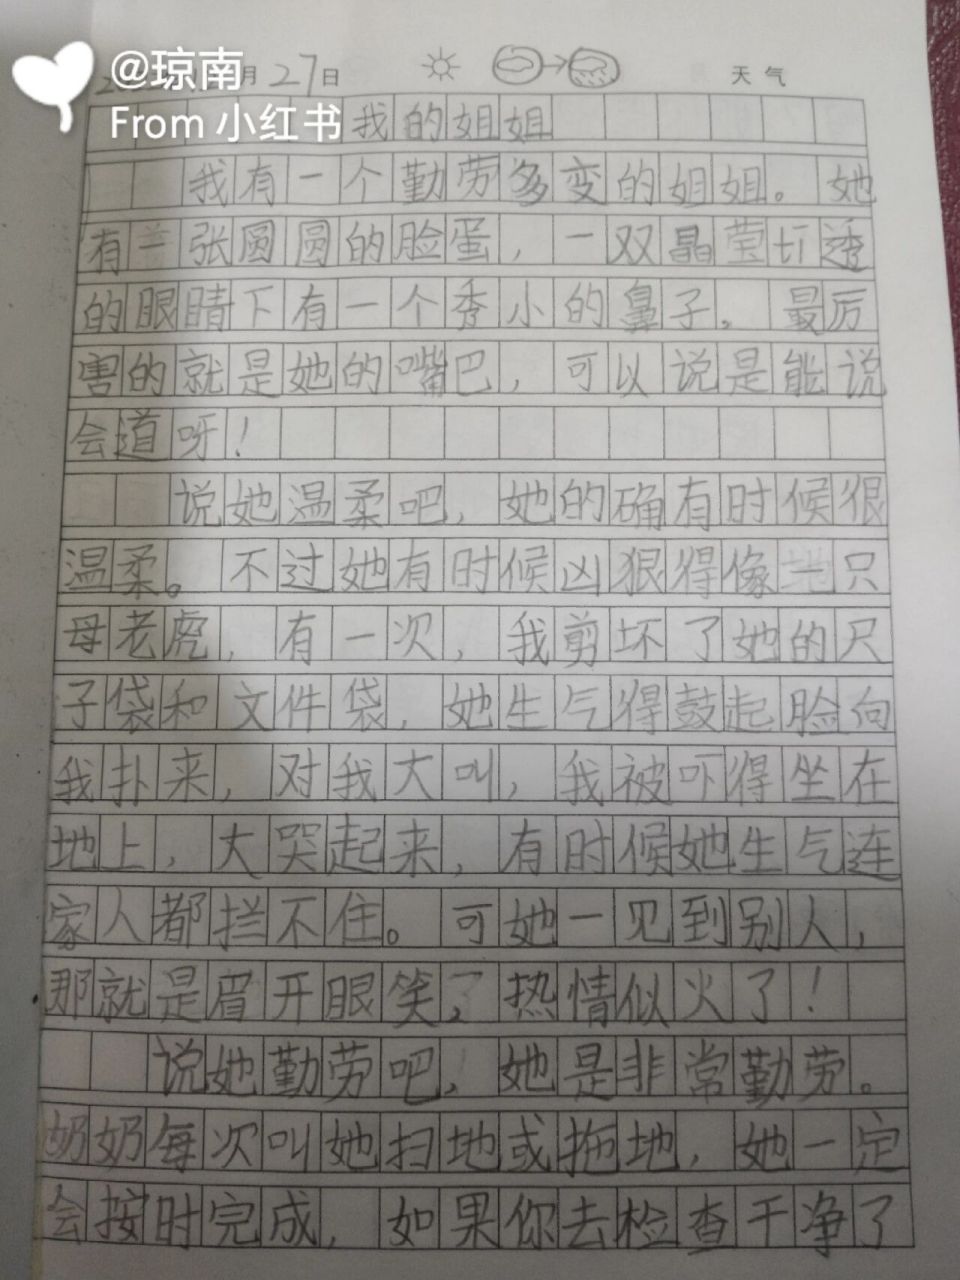 @琼南
月27日 天气
From 小红书
我的姐姐
我有一个勤劳多变的姐姐。她
有一张圆圆的脸蛋,一双晶莹切透
的眼睛下有一个秀小的鼻子。最厉
害的就是她的嘴巴,可以说是能说
会道呀!
说她温柔吧,她的确有时候很
温柔。不过她有时候凶狠得像一只
母老虎,有一次,我剪坏了她的尺
子袋和文件袋,她生气得鼓起脸向
我扑来,对我大叫,我被吓得坐在
地上,大哭起来,有时候她生气连
家人都拦不住。可她一见到别人,
那就是眉开眼笑,热情似火了!
说她勤劳吧,她是非常勤劳。
奶奶每次叫她扫地或拖地,她一定
会按时完成,如果你去检查干净了